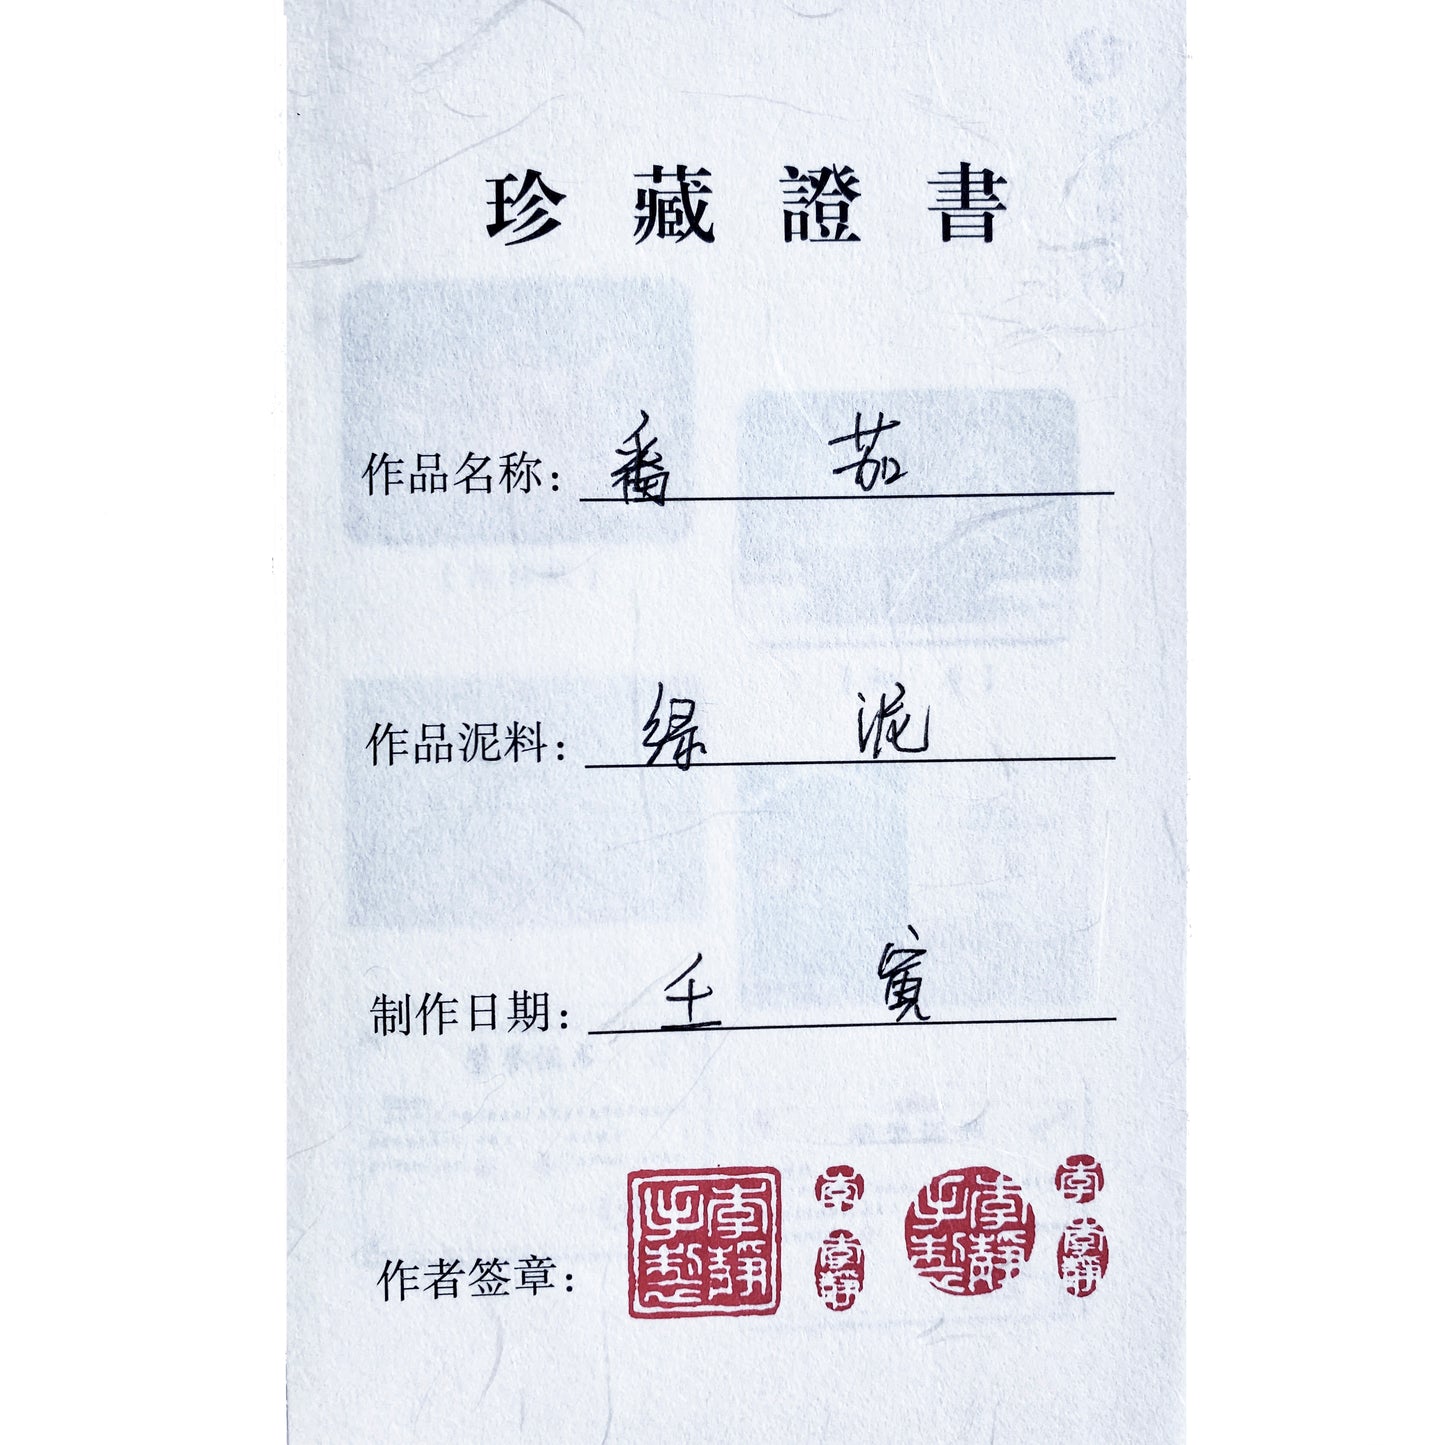 珍藏證書
作品名称：番茄
作品泥料：绿泥
制作日期：壬寅
作者签章：
李靜手製 李 李靜 李靜手製 李 李靜